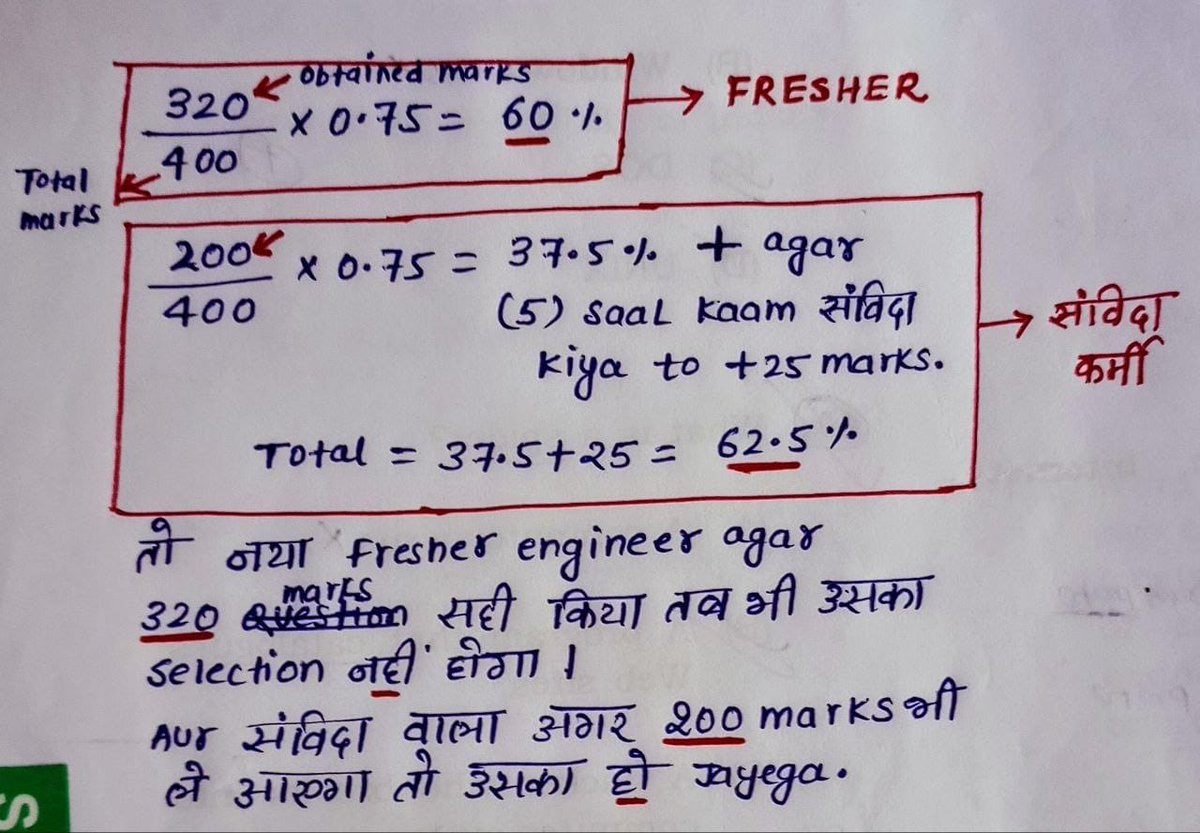 obtained marks
320/400 × 0.75 = 60 % → FRESHER
Total marks
200/400 × 0.75 = 37.5 % + agar
(5) saal kaam संविदा
kiya to +25 marks.
→ संविदा कर्मी
Total = 37.5+25 = 62.5 %
तो नया fresher engineer agar
marks
320 Question सही किया तब भी उसका
selection नहीं होगा ।
Aur संविदा वाला अगर 200 marks भी
ले आएगा तो उसका हो Jayega.
S